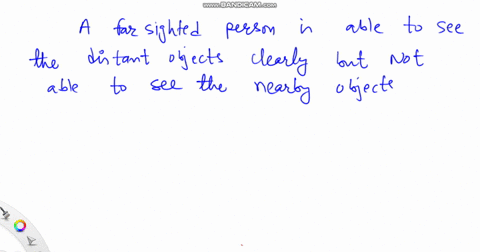 WWW.BANDICAM.COM
A far sighted person in able to see
the distant objects clearly but Not
able to see the nearby objects